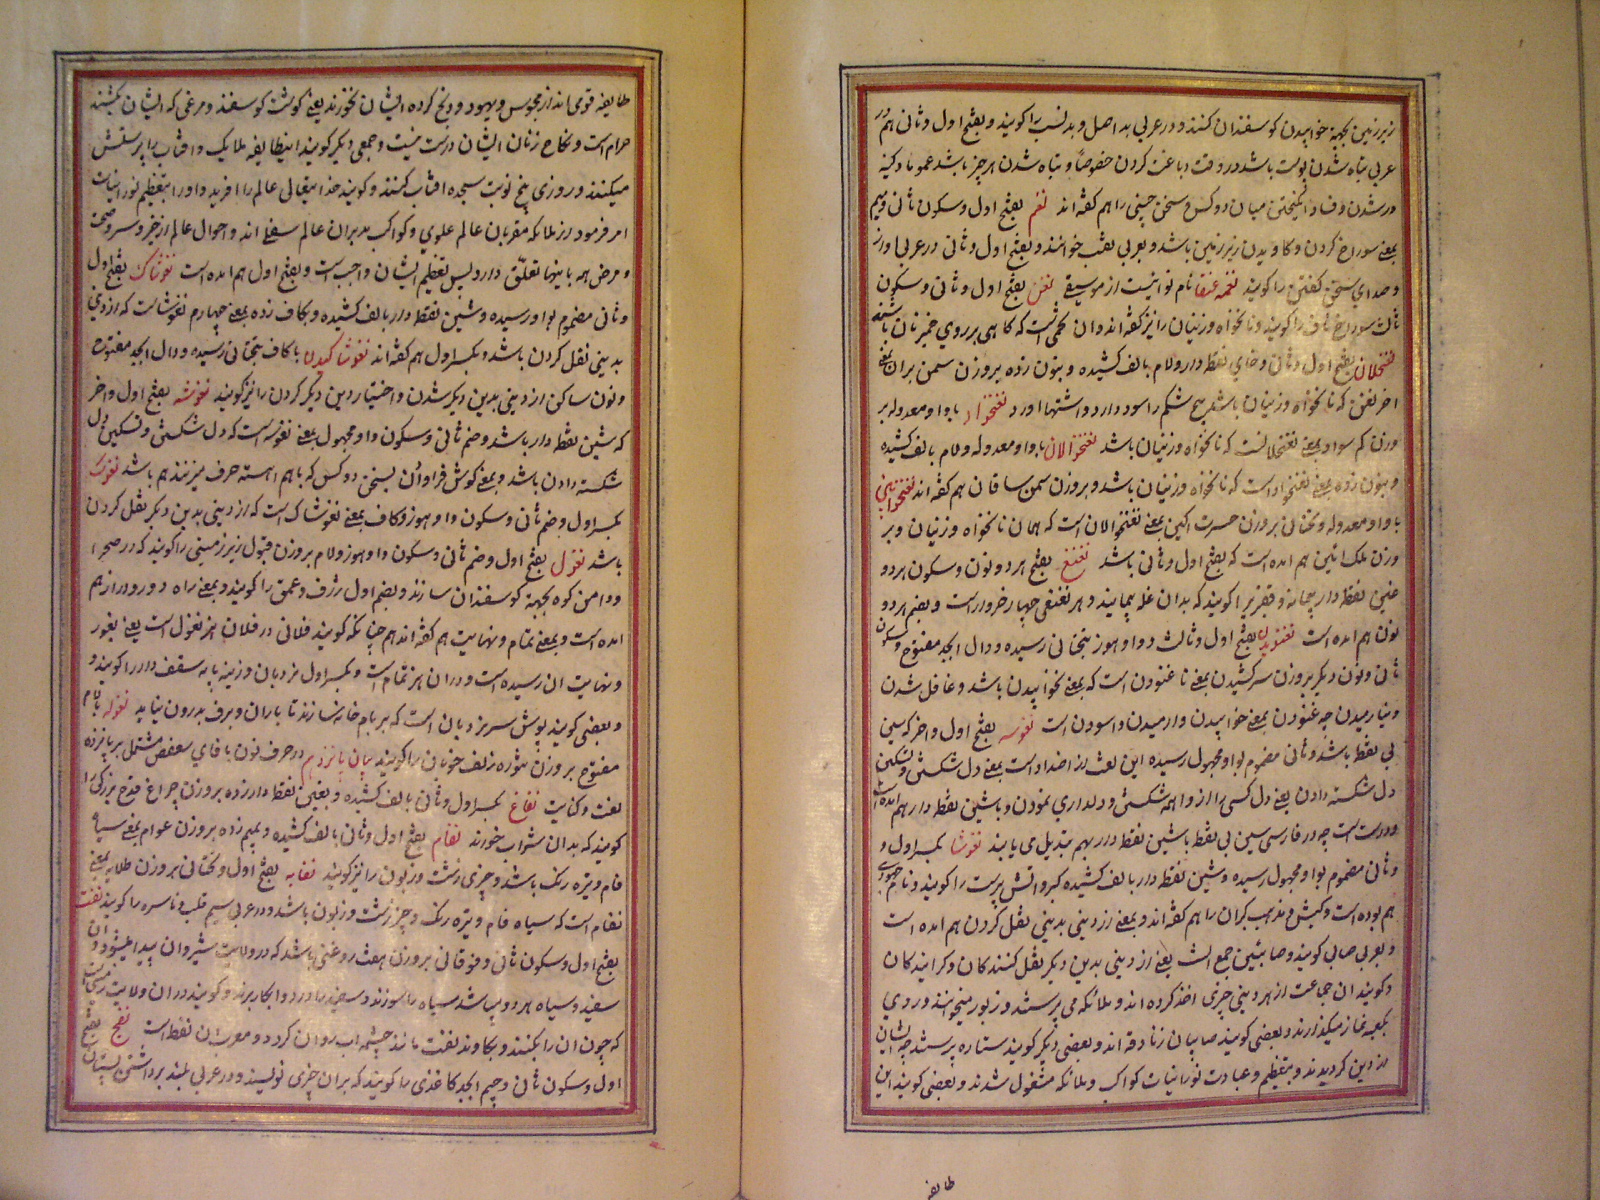 زیرزمین بجهة خوابیدن کوسفندان کنند و در عربی بد اصل و بد نسب را کویند و بفتح اول و ثانی هم در
عربی تباه شدن پوست باشد در وقت دباغت کردن خصوصاً و تباه شدن هر چیز باشد عموما و کینه
ور شدن و فساد انکیختن میان دو کس و سخن چینی را هم کفته اند نغم بفتح اول و سکون ثانی و میم
بمعنی سوراخ کردن و کاویدن زیرزمین باشد و بعربی نقب خوانند و بفتح اول و ثانی در عربی اواز
و صدای سخن کفتن را کویند نغمه عنقا نام نوائیست از موسیقی نغن بفتح اول و ثانی و سکون
ثالث سوراخ ناف را کویند و نانخواه و زنیان را نیز کفته اند و ان تخمی است که کاهی بر روی خمیر نان پاشند
نغنخلان بفتح اول و ثانی و خای نقطه دار و لام بالف کشیده و بنون زده بروزن سمن بران بمعنی
اخر نغن که نانخواه و زنیان باشد ریح شکم را سود دارد و اشتها اورد نغنخواد با واو معدوله بر
وزن کم سواد بمعنی نغنخلانست که نانخواه و زنیان باشد نغنخوالان با واو معدوله و لام بالف کشیده
و بنون زده بمعنی نغنخواد است که نانخواه و زنیان باشد و بروزن سمن ساقان هم کفته اند نغنخوائین
با واو معدوله و تحتانی بروزن حسرت اکین بمعنی نغنخوالان است که همان نانخواه و زنیان و بر
وزن ملک ائین هم امده است که بفتح اول و ثانی باشد نغنغ بفتح هر دو نون و سکون هر دو
غین نقطه دار پیمانه و قفیز را کویند که بدان غله پیمایند و هر نغنغی چهار خروار است و بضم هر دو
نون هم امده است نغنویدن بفتح اول و ثالث و واو هوز بتحتانی رسیده و دال ابجد مفتوح و سکون
ثانی و نون دیکر بروزن سرکشیدن بمعنی ناغنودن است که بمعنی نخوابیدن باشد و غافل شدن
و نیارمیدن چه غنودن بمعنی خوابیدن و ارمیدن و اسودن است نغوسه بفتح اول و اخر که سین
بی نقطه باشد و ثانی مضموم بواو مجهول رسیده این لغت از اضداد است بمعنی دل شکستن و تسکین
دل شکسته دادن یعنی دل کسی را از واهمه شکستن و دلداری نمودن و با شین نقطه دار هم امده است
و درست است چه در فارسی سین بی نقطه با شین نقطه دار بهم تبدیل می یابند نغوشا بکسر اول و
و ثانی مضموم بواو مجهول رسیده و شین نقطه دار بالف کشیده کبر و اتش پرست را کویند و نام جهودی
هم بوده است و کیش و مذهب کبران را هم کفته اند و بمعنی از دینی بدینی نقل کردن هم امده است
و بعربی صابی کویند و صابئین جمع است یعنی از دینی بدین دیکر نقل کنندکان و کرایندکان
و کویند ان جماعت از هر دینی چیزی اخذ کرده اند و ملائکه می پرستند و زبور میخوانند و روی
بکعبه نماز میکذارند و بعضی کویند صابیان زنادقه اند و بعضی دیکر کویند ستاره پرستند چه ایشان
از دین کردیدند و بتعظیم و عبادت نورانیات کواکب و ملائکه مشغول شدند و بعضی کویند این
طایفه
طایفه قومی اند از مجوس و یهود و ذبح کرده ایشان نخورند یعنی کوشت کوسفند و مرغی که ایشان بکشند
حرام است و نکاح زنان ایشان درست نیست و جمعی دیکر کویند اینطایفه ملایک و افتاب را پرستش
میکنند و روزی پنج نوبت سجده افتاب کنند و کویند خدایتعالی عالم را افرید و او را بتعظیم نورانیات
امر فرمود از ملائکه مقربان عالم علوی و کواکب مدبران عالم سفلی اند و احوال عالم از خیر و شر و صحت
و مرض همه باینها تعلق دارد پس تعظیم ایشان واجب است و بفتح اول هم امده است نغوشاک بفتح اول
و ثانی مضموم بواو رسیده و شین نقطه دار بالف کشیده و بکاف زده بمعنی چهارم نغوشاست که از دینی
بدینی نقل کردن باشد و بکسر اول هم کفته اند نغوشاکیدن با کاف بتحتانی رسیده و دال ابجد مفتوح
و نون ساکن از دینی بدین دیکر شدن و اختیار دین دیکر کردن را نیز کویند نغوشه بفتح اول و اخر
که شین نقطه دار باشد و ضم ثانی و سکون واو مجهول بمعنی نغوسه است که دل شکستن و تسکین دل
شکسته دادن باشد و بمعنی کوش فراداشتن بسخن دو کس که باهم اهسته حرف میزنند هم باشد نغوک
بکسر اول و ضم ثانی و سکون واو هوز و کاف بمعنی نغوشاک است که از دینی بدین دیکر نقل کردن
باشد نغول بفتح اول و ضم ثانی و سکون واو هوز و لام بروزن قبول زیرزمینی را کویند که در صحرا
و دامن کوه بجهة کوسفندان سازند و بضم اول ژرف و عمق را کویند و بمعنی راه دور و دراز هم
امده است و بمعنی تمام و نهایت هم کفته اند همچنانکه کویند فلانی در فلان هنر نغول است یعنی بغور
و نهایت ان رسیده است و دران هنر تمام است و بکسر اول نردبان و زینه پایه سقف دار را کویند و
و بعضی کویند پوشش سر نردبان است که بر بام خانه سازند تا باران و برف بدرون نیاید نغوله با لام
مفتوح بروزن شوره زلف خوبان را کویند بیان پانزدهم در حرف نون با فای سعفص مشتمل بر پانزده
لغت و کنایت نفاغ بکسر اول و ثانی بالف کشیده و بغین نقطه دار زده بروزن چراغ قدح بزرکی را
کویند که بدان شراب خورند نفام بفتح اول و ثانی بالف کشیده و بمیم زده بروزن عوام بمعنی سیاه
فام و تیره رنک باشد و چیزی زشت و زبون را نیز کویند نفایه بفتح اول و تحتانی بروزن طلایه بمعنی
نفام است که سیاه فام و تیره رنک و چیز زشت و زبون باشد و در عربی سیم قلب و ناسره را کویند نفت
بفتح اول و سکون ثانی و فوقانی بروزن هفت روغنی باشد که در ولایت شیروان پیدا میشود و ان
سفید و سیاه هر دو میباشد سیاه را سوزند و سفید را در دوا بکار برند و کویند دران ولایت زمینی است
که چون ان را بکنند و بکاوند نفت مانند چشمه اب روان کردد و معرب ان نفط است نفج بفتح
اول و سکون ثانی و جیم ابجد کاغذی را کویند که بران چیزی نویسند و در عربی بلند برداشتن پستان